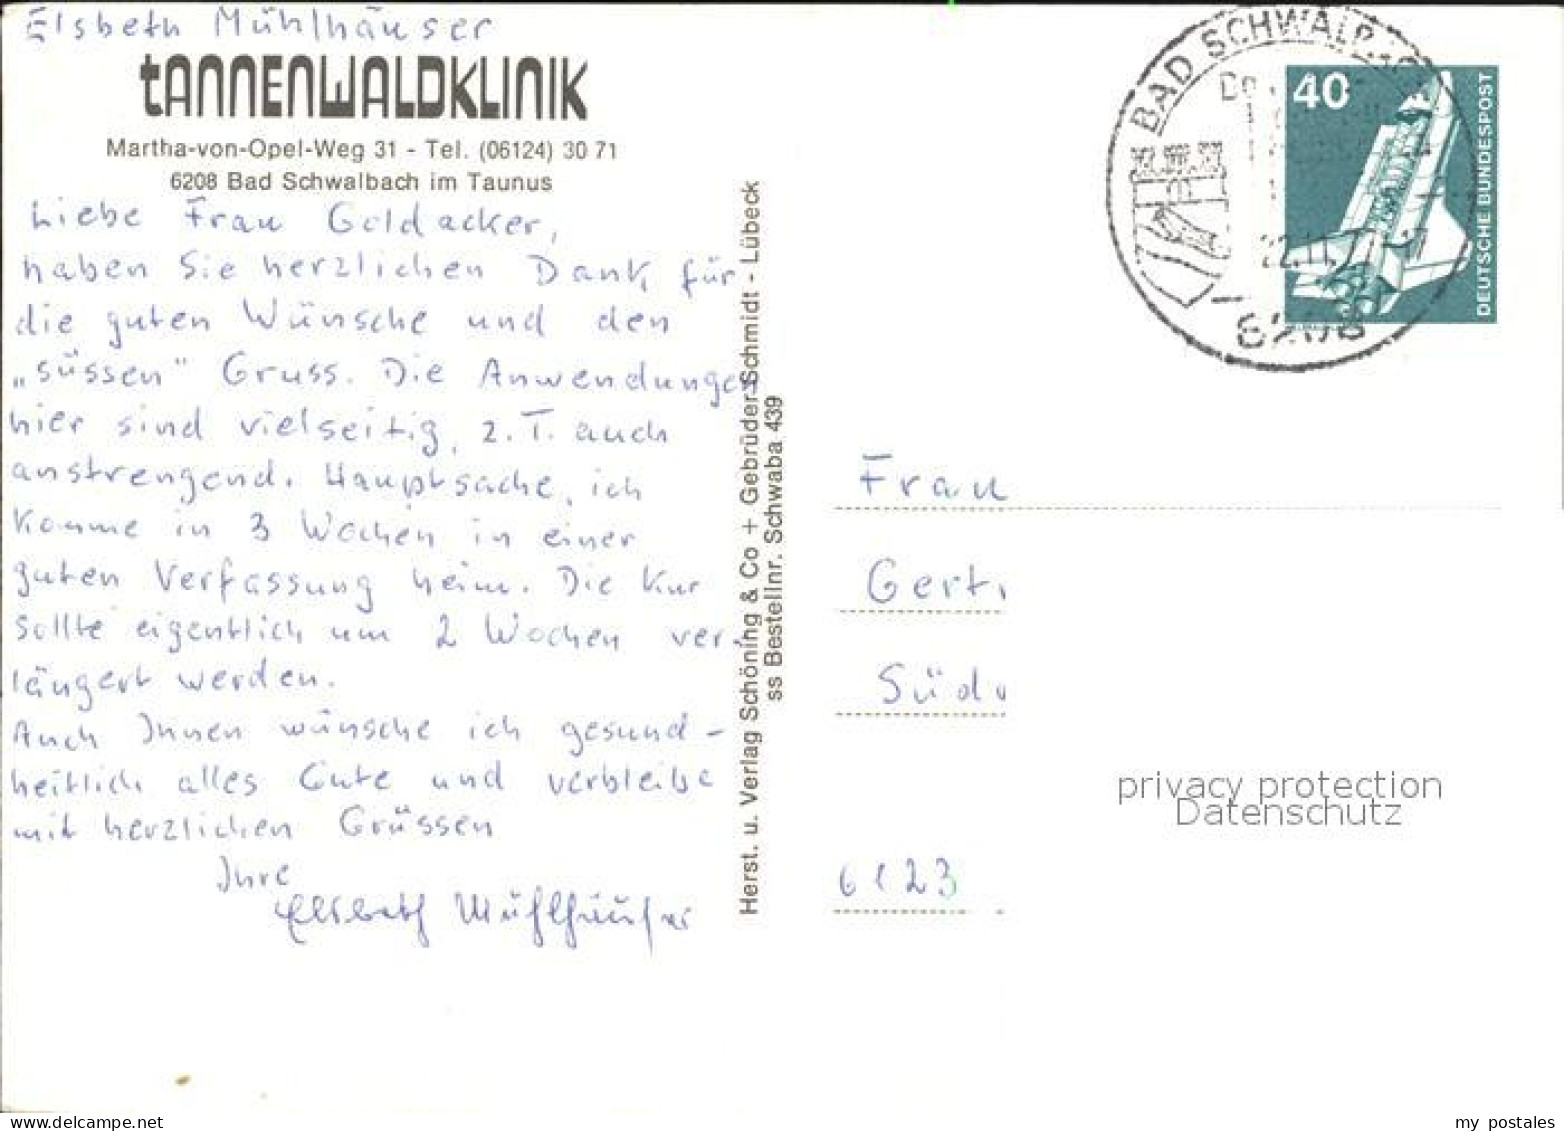 Elsbeth Mühlhäuser
tANNENWALDKLINIK
Martha-von-Opel-Weg 31 - Tel. (06124) 30 71
6208 Bad Schwalbach im Taunus
Liebe Frau Goldacker,
haben Sie herzlichen Dank für
die guten Wünsche und den
„süssen" Gruss. Die Anwendungen
hier sind vielseitig, z.T. auch
anstrengend. Hauptsache, ich
komme in 3 Wochen in einer
guten Verfassung heim. Die Kur
sollte eigentlich um 2 Wochen ver-
längert werden.
Auch Ihnen wünsche ich gesund-
heitlich alles Gute und verbleibe
mit herzlichen Grüssen
Ihre
Elsbeth Mühlhäuser
Herst. u. Verlag Schöning & Co + Gebrüder Schmidt - Lübeck
ss Bestellnr. Schwaba 439
BAD SCHWALBACH
22.11.77
6208
40
DEUTSCHE BUNDESPOST
Frau
Gert
Süd
6123
privacy protection
Datenschutz
my postales